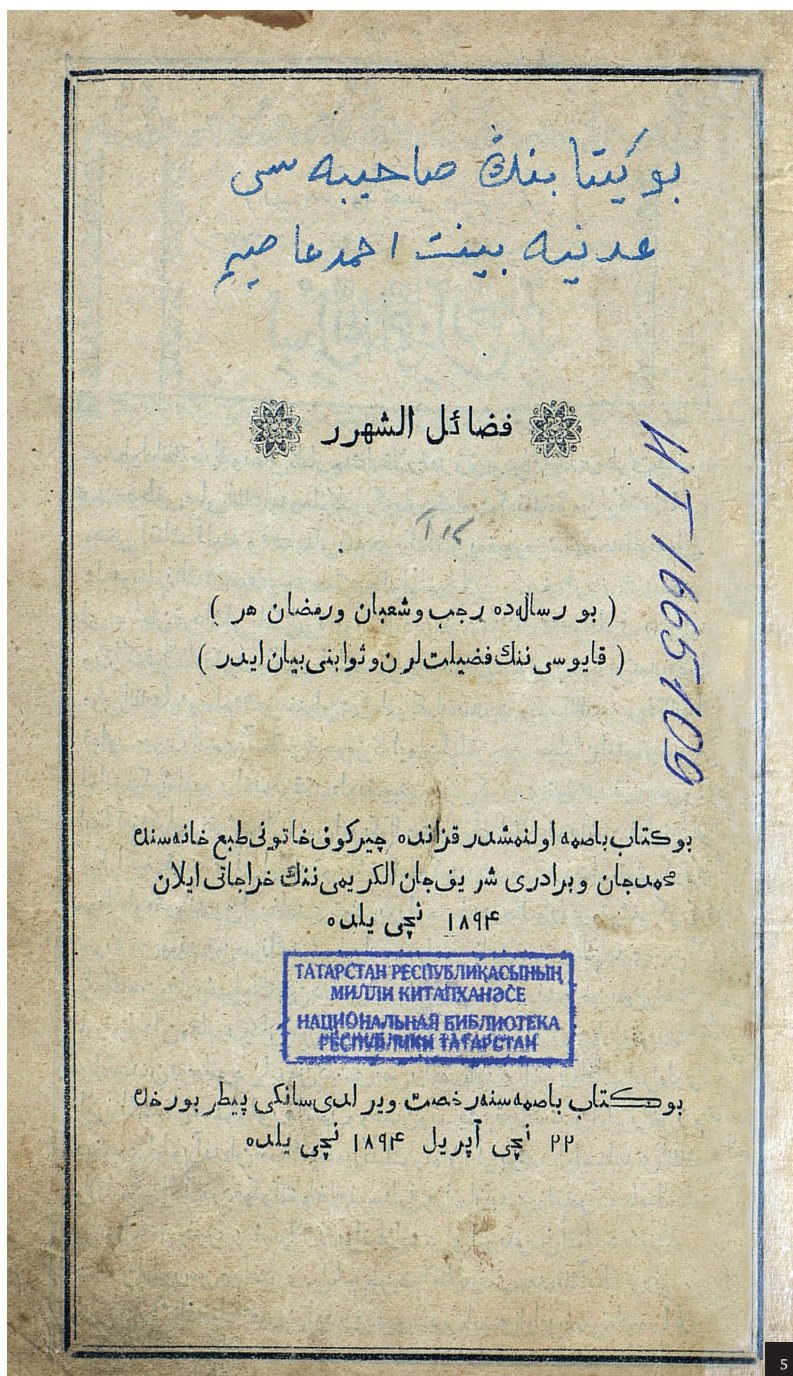 بو كيتا بننڭ صاحيبه سى
عدنيه بينت احمد عاصيم
فضائل الشهرر
( بو رساله‌ده رجب و شعبان و رمضان هر )
( قايوسى ننك فضيلت لرن و ثوابنى بيان ايدر )
بو كتاب باصمه اولنمشدر قزانده چيركوف خاتونى طبع خانه سنده
محمدجان و برادرى شريف جان الكريمى ننك خراجاتى ايلان
۱۸۹۴ نچى يلده
ТАТАРСТАН РЕСПУБЛИКАСЫНЫҢ
МИЛЛИ КИТАПХАНӘСЕ
НАЦИОНАЛЬНАЯ БИБЛИОТЕКА
РЕСПУБЛИКИ ТАТАРСТАН
بو كتاب باصمه سنه رخصت ويرلدى سانكى پيطربورخده
۲۲ نچى آپريل ۱۸۹۴ نچى يلده
ИТ 1665109
5